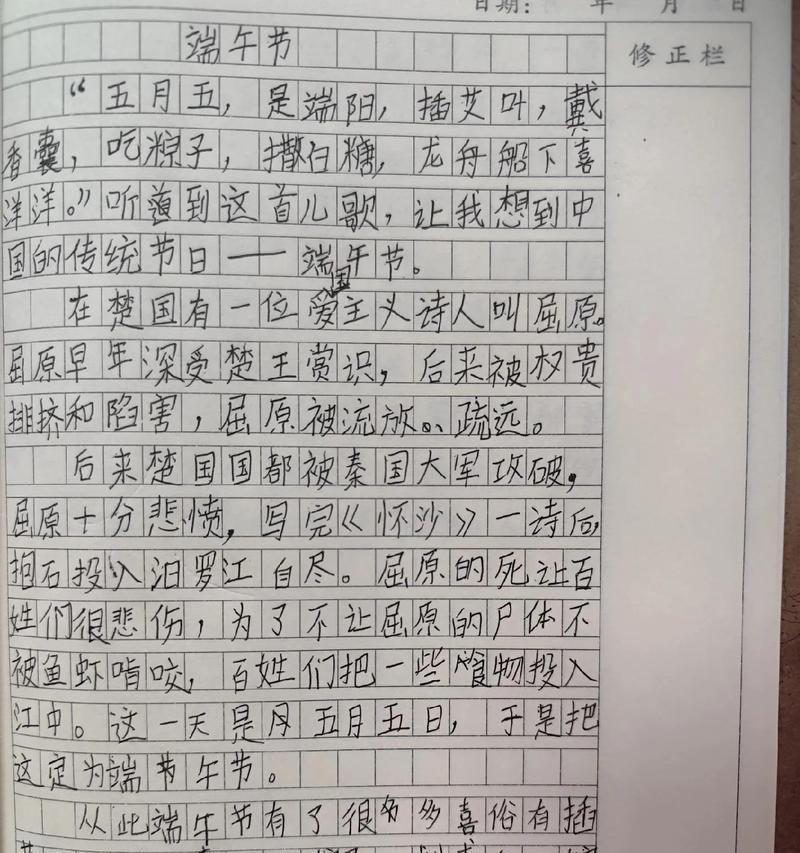 日期： 年 月 日
修正栏
端午节
“五月五，是端阳，插艾叶，戴
香囊，吃粽子，撒白糖，龙舟船下喜
洋洋。”听道到这首儿歌，让我想到中
国的传统节日——端午节。
在楚国有一位爱国主义诗人叫屈原。
屈原早年深受楚王赏识，后来被权贵
排挤和陷害，屈原被流放、疏远。
后来楚国国都被秦国大军攻破，
屈原十分悲愤，写完《怀沙》一诗后，
抱石投入汨罗江自尽。屈原的死让百
姓们很悲伤，为了不让屈原的尸体不
被鱼虾啃咬，百姓们把一些食物投入
江中。这一天是月五月五日，于是把
这定为端节午节。
从此端午节有了很多多喜俗有插